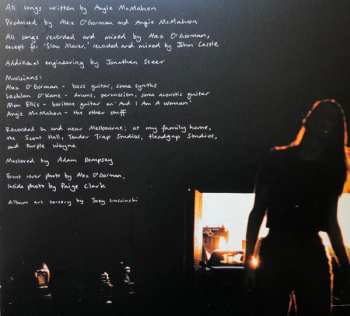 All songs written by Angie McMahon
Produced by Alex O'Gorman and Angie McMahon
All songs recorded and mixed by Alex O'Gorman,
except for 'Slow Mover,' recorded and mixed by John Castle
Additional engineering by Jonathan Steer
Musicians:
Alex O'Gorman - bass guitar, some synths
Lachlan O'Kane - drums, percussion, some acoustic guitar
Mon Ellis - baritone guitar on 'And I Am A Woman'
Angie McMahon - the other stuff
Recorded in and near Melbourne, at my family home,
the Scout Hall, Tender Trap Studios, Headgap Studios,
and Purple Wayne
Mastered by Adam Dempsey
Front cover photo by Alex O'Gorman,
Inside photo by Paige Clark
Album art by Joey